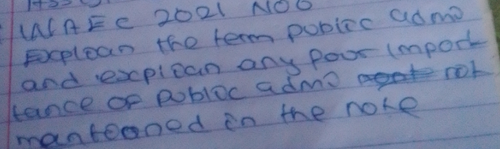 WAEC 2021 NO6
Exploan the term publoc admo
and exploan any pour import
tance of publoc admo not
mantooned in the note